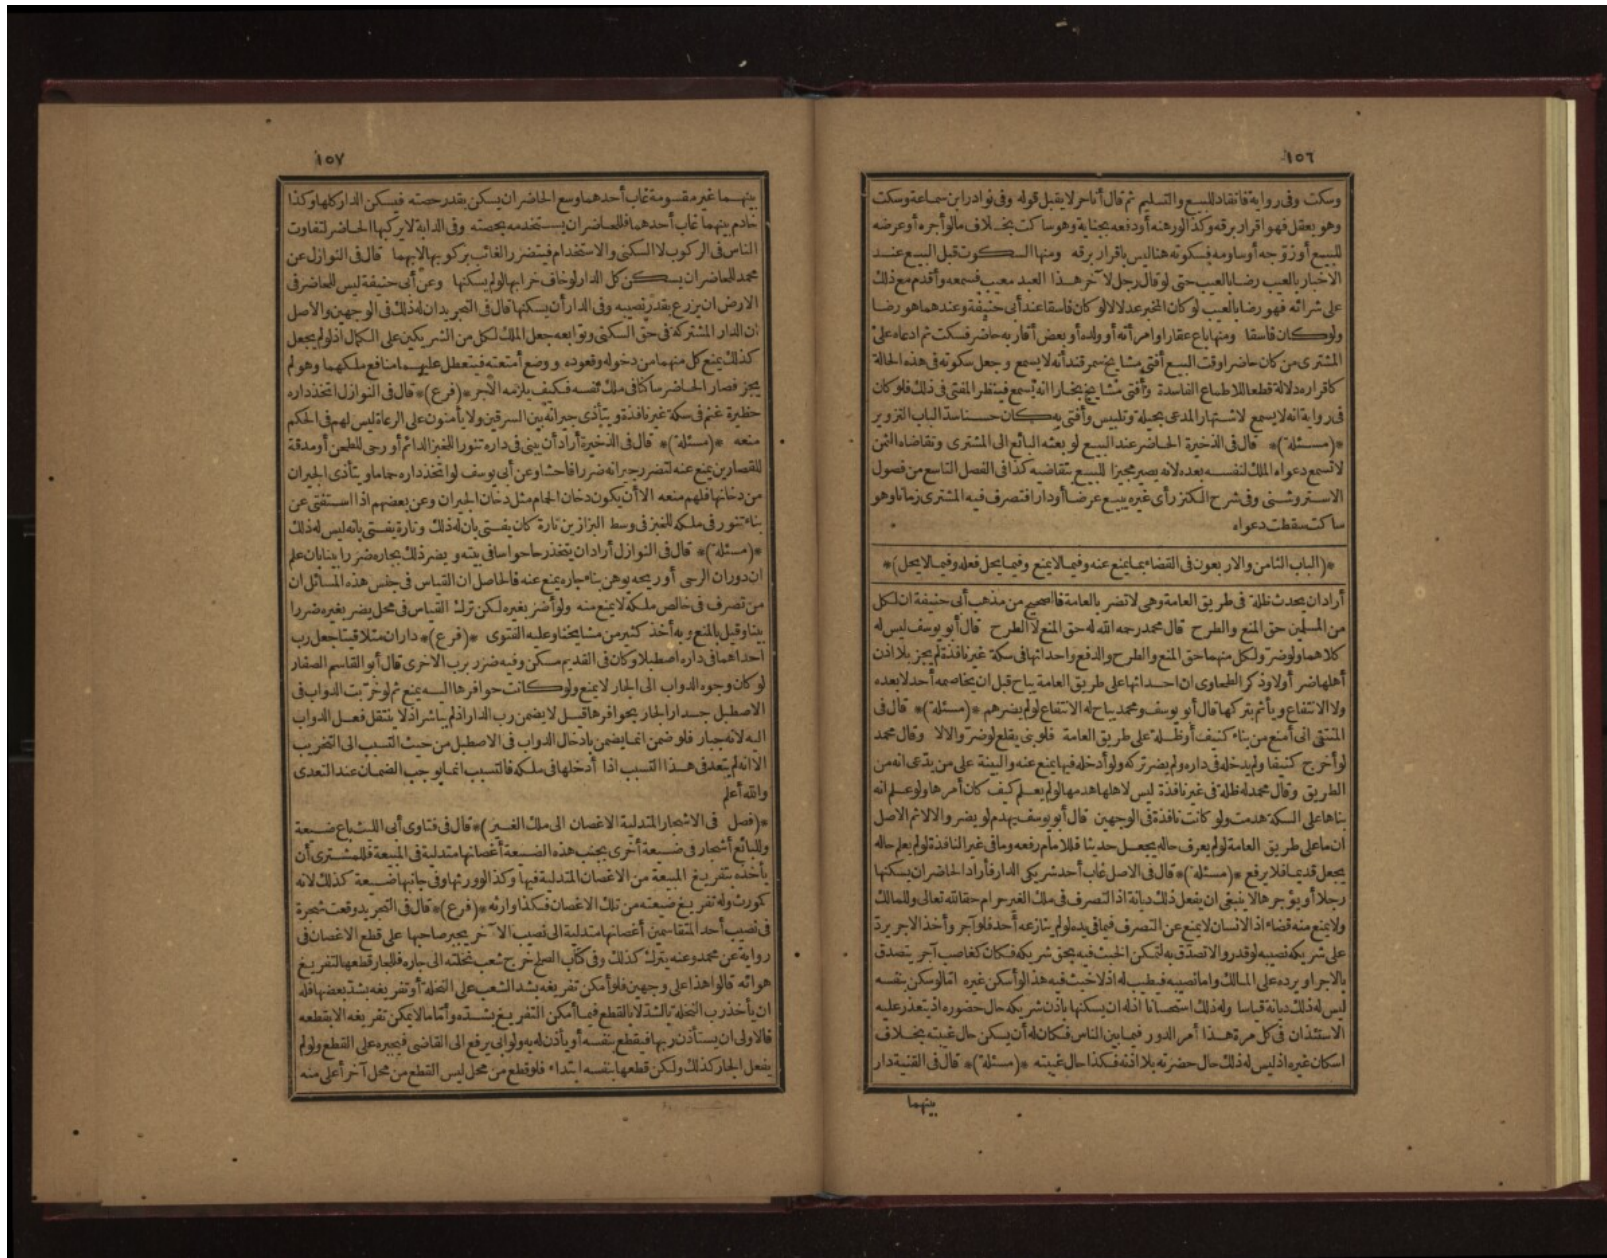 ١٥٦
وسكت وفى رواية فانقاد للبيع والتسليم ثم قال أنا حر لا يقبل قوله وفى نوادر ابن سماعة وسكت
وهو يعقل فهو اقرار برقه وكذا لو رهنه أو دفعه بجناية وهو ساكت بخلاف ما لو أجره أو عرضه
للبيع أو زوّجه أو ساومه فسكوته هنا ليس باقرار برقه ومنها السكوت قبل البيع عنــد
الاخبار بالعيب رضا بالعيب حتى لو قال رجل لآخر هذا العبد معيب فسمعه وأقدم مع ذلك
على شرائه فهو رضا بالعيب لو كان المخبر عدلا لا لو كان فاسقا عند أبى حنيفة وعندهما هو رضا
ولو كان فاسقا ومنها باع عقارا وامرأته أو ولده أو بعض أقاربه حاضر فسكت ثم ادعاه على
المشترى من كان حاضرا وقت البيع أفتى مشايخ سمرقند أنه لا يسمع وجعل سكوته فى هذه الحالة
كاقراره دلالة قطعا للاطماع الفاسدة وأفتى مشايخ بخارا انه يسمع فينظر المفتى فى ذلك فلو كان
فى رواية انه لا يسمع لاشتهار المدعى بحيلة وتلبيس وأفتى به كان حسنا سدا لباب التزوير
*(مسئلة)* قال فى الذخيرة الحاضر عند البيع لو بعثه البائع الى المشترى وتقاضاه الثمن
لا تسمع دعواه الملك لنفسه بعده لانه يصير مجيزا للبيع بتقاضيه كذا فى الفصل التاسع من فصول
الاستروشنى وفى شرح الكنز رأى غيره يبيع عرضا أو دارا فتصرف فيه المشترى زمانا وهو
ساكت سقطت دعواه
*(الباب الثامن والاربعون فى القضاء بما يمنع عنه وفيما لا يمنع وفيما يحل فعله وفيما لا يحل)*
أراد ان يحدث ظلة فى طريق العامة وهى لا تضر بالعامة فالصحيح من مذهب أبى حنيفة ان لكل
من المسلمين حق المنع والطرح قال محمد رحمه الله له حق المنع لا الطرح قال أبو يوسف ليس له
كلاهما ولو ضر ولكل منهما حق المنع والطرح والدفع واحداثها فى سكة غير نافذة لم يجز بلا اذن
أهلها ضر أو لا وذكر الطحاوى ان احداثها على طريق العامة يباح قبل ان يخاصمه أحد لا بعده
ولا الانتفاع ويأثم بتركها قال أبو يوسف ومحمد يباح له الانتفاع لو لم يضرهم *(مسئلة)* قال فى
المنتقى انى أمنع من بناء كنيف أو ظلة على طريق العامة فلو بنى يقلع لو ضر والا لا وقال محمد
لو أخرج كنيفا ولم يدخله فى داره ولم يضر تركه ولو أدخله فيها يمنع عنه والبينة على من يدّعى انه من
الطريق وقال محمد له ظلة فى غير نافذة ليس لاهلها هدمها لو لم يعلم كيف كان أمرها ولو علم انه
بناها على السكة هدمت ولو كانت نافذة فى الوجهين قال أبو يوسف يهدم لو يضر والا لا ثم الاصل
ان ما على طريق العامة لو لم يعرف حاله يجعل حديثا فللامام رفعه وما فى غير النافذة لو لم يعلم حاله
يجعل قديما فلا يرفع *(مسئلة)* قال فى الاصل غاب أحد شريكى الدار فأراد الحاضر ان يسكنها
رجلا أو يؤجرها لا ينبغى ان يفعل ذلك ديانة اذ التصرف فى ملك الغير حرام حقا لله تعالى وللمالك
ولا يمنع منه قضاء اذ الانسان لا يمنع عن التصرف فيما فى يده لو لم ينازعه أحد فلو آجر وأخذ الاجر يردّ
على شريكه نصيبه لو قدر والا تصدّق به لتمكن الخبث فيه بحق شريكه فكان كغاصب آجر يتصدق
بالاجر أو يرده على المالك واما نصيبه فيطيب له اذ لا خبث فيه هذا لو أسكن غيره اما لو سكن بنفسه
ليس له ذلك ديانة قياسا وله ذلك استحسانا اذ له ان يسكنها باذن شريكه حال حضوره اذ يتعذر عليه
الاستئذان فى كل مرة هذا أمر الدور فيما بين الناس فكان له أن يسكن حال غيبته بخلاف
اسكان غيره اذ ليس له ذلك حال حضرته بلا اذنه فكذا حال غيبته *(مسئلة)* قال فى القنية دار
بينهما
١٥٧
بينهما غير مقسومة غاب أحدهما وسع الحاضر ان يسكن بقدر حصته فيسكن الدار كلها وكذا
خادم بينهما غاب أحدهما فللحاضر ان يستخدمه بحصته وفى الدابة لا يركبها الحاضر لتفاوت
الناس فى الركوب لا السكنى والاستخدام فيتضرر الغائب بركوبها لا بهما قال فى النوازل عن
محمد للحاضر ان يسكن كل الدار لو خاف خرابها لو لم يسكنها وعن أبى حنيفة ليس للحاضر فى
الارض ان يزرع بقدر نصيبه وفى الدار أن يسكنها قال فى التجريد ان له ذلك فى الوجهين والاصل
ان الدار المشتركة فى حق السكنى وتوابعه جعل الملك لكل من الشريكين على الكمال اذ لو لم يجعل
كذلك يمنع كل منهما من دخوله وقعوده ووضع أمتعته فيتعطل عليهما منافع ملكهما وهو لم
يجز فصار الحاضر ساكنا فى ملك نفسه فكيف يلزمه الأجر *(فرع)* قال فى النوازل اتخذ داره
حظيرة غنم فى سكة غير نافذة ويتأذى جيرانه بين السرقين ولا يأمنون على الرعاة ليس لهم فى الحكم
منعه *(مسئلة)* قال فى الذخيرة أراد أن يبنى فى داره تنورا للخبز الدائم أو رحى للطحن أو مدقة
للقصارين يمنع عنه لتضرر جيرانه ضررا فاحشا وعن أبى يوسف لو اتخذ داره حماما ويتأذى الجيران
من دخانها فلهم منعه الا أن يكون دخان الحمام مثل دخان الجيران وعن بعضهم اذا استفتى عن
بناء تنور فى ملكه للخبز فى وسط البزازين تارة كان يفتى بان له ذلك وتارة يفتى بانه ليس له ذلك
*(مسئلة)* قال فى النوازل أراد ان يتخذ رحا حواسا فى بيته ويضر ذلك بجاره ضررا بينا بان علم
ان دوران الرحى أو ريحه يوهن بناء جاره يمنع عنه فالحاصل ان القياس فى جنس هذه المسائل ان
من تصرف فى خالص ملكه لا يمنع منه ولو أضر بغيره لكن ترك القياس فى محل يضر بغيره ضررا
بينا وقيل بالمنع وبه أخذ كثير من مشايخنا وعليه الفتوى *(فرع)* داران متلاقيتا جعل رب
احداهما فى داره اصطبلا وكان فى القديم مسكن وفيه ضرر برب الاخرى قال أبو القاسم الصفار
لو كان وجوه الدواب الى الجار لا يمنع ولو كانت حوافرها اليه يمنع ثم لو خرّبت الدواب فى
الاصطبل جدار الجار بحوافرها قيل لا يضمن رب الدار اذ لم يباشر اذ لا ينتقل فعل الدواب
اليه لانه جبار فلو ضمن انما يضمن بادخال الدواب فى الاصطبل من حيث التسبب الى التخريب
الا انه لم يتعد فى هذا التسبب اذا أدخلها فى ملكه فالتسبب انما يوجب الضمان عند التعدى
والله أعلم
*(فصل فى الاشجار المتدلية الاغصان الى ملك الغير)* قال فى فتاوى أبى الليث باع ضيعة
وللبائع أشجار فى ضيعة أخرى بجنب هذه الضيعة أغصانها متدلية فى المبيعة فللمشترى أن
يأخذه بتفريغ المبيعة من الاغصان المتدلية فيها وكذا لو ورثها وفى جانبها ضيعة كذلك لانه
كمورثه وله تفريغ ضيعته من تلك الاغصان فكذا وارثه *(فرع)* قال فى التجريد وقعت شجرة
فى نصيب أحد المتقاسمين أغصانها متدلية الى نصيب الآخر يجبر صاحبها على قطع الاغصان فى
رواية عن محمد وعنه يترك كذلك وفى كتاب الصلح خرج شعب نخلته الى جاره فللجار قطعها لتفريغ
هوائه قالوا هذا على وجهين فلو أمكن تفريغه بشد الشعب على النخلة أو تفريغه بشد بعضها فله
ان يأخذ رب النخلة بالشد لا بالقطع فيما أمكن التفريغ بشده وأما ما لا يمكن تفريغه الا بقطعه
فالاولى ان يستأذن ربها فيقطع بنفسه أو يأذن له به ولو ابى يرفع الى القاضى فيجبره على القطع ولو لم
يفعل الجار كذلك ولكن قطعها بنفسه ابتداء فلو قطع من محل ليس القطع من محل آخر أعلى منه